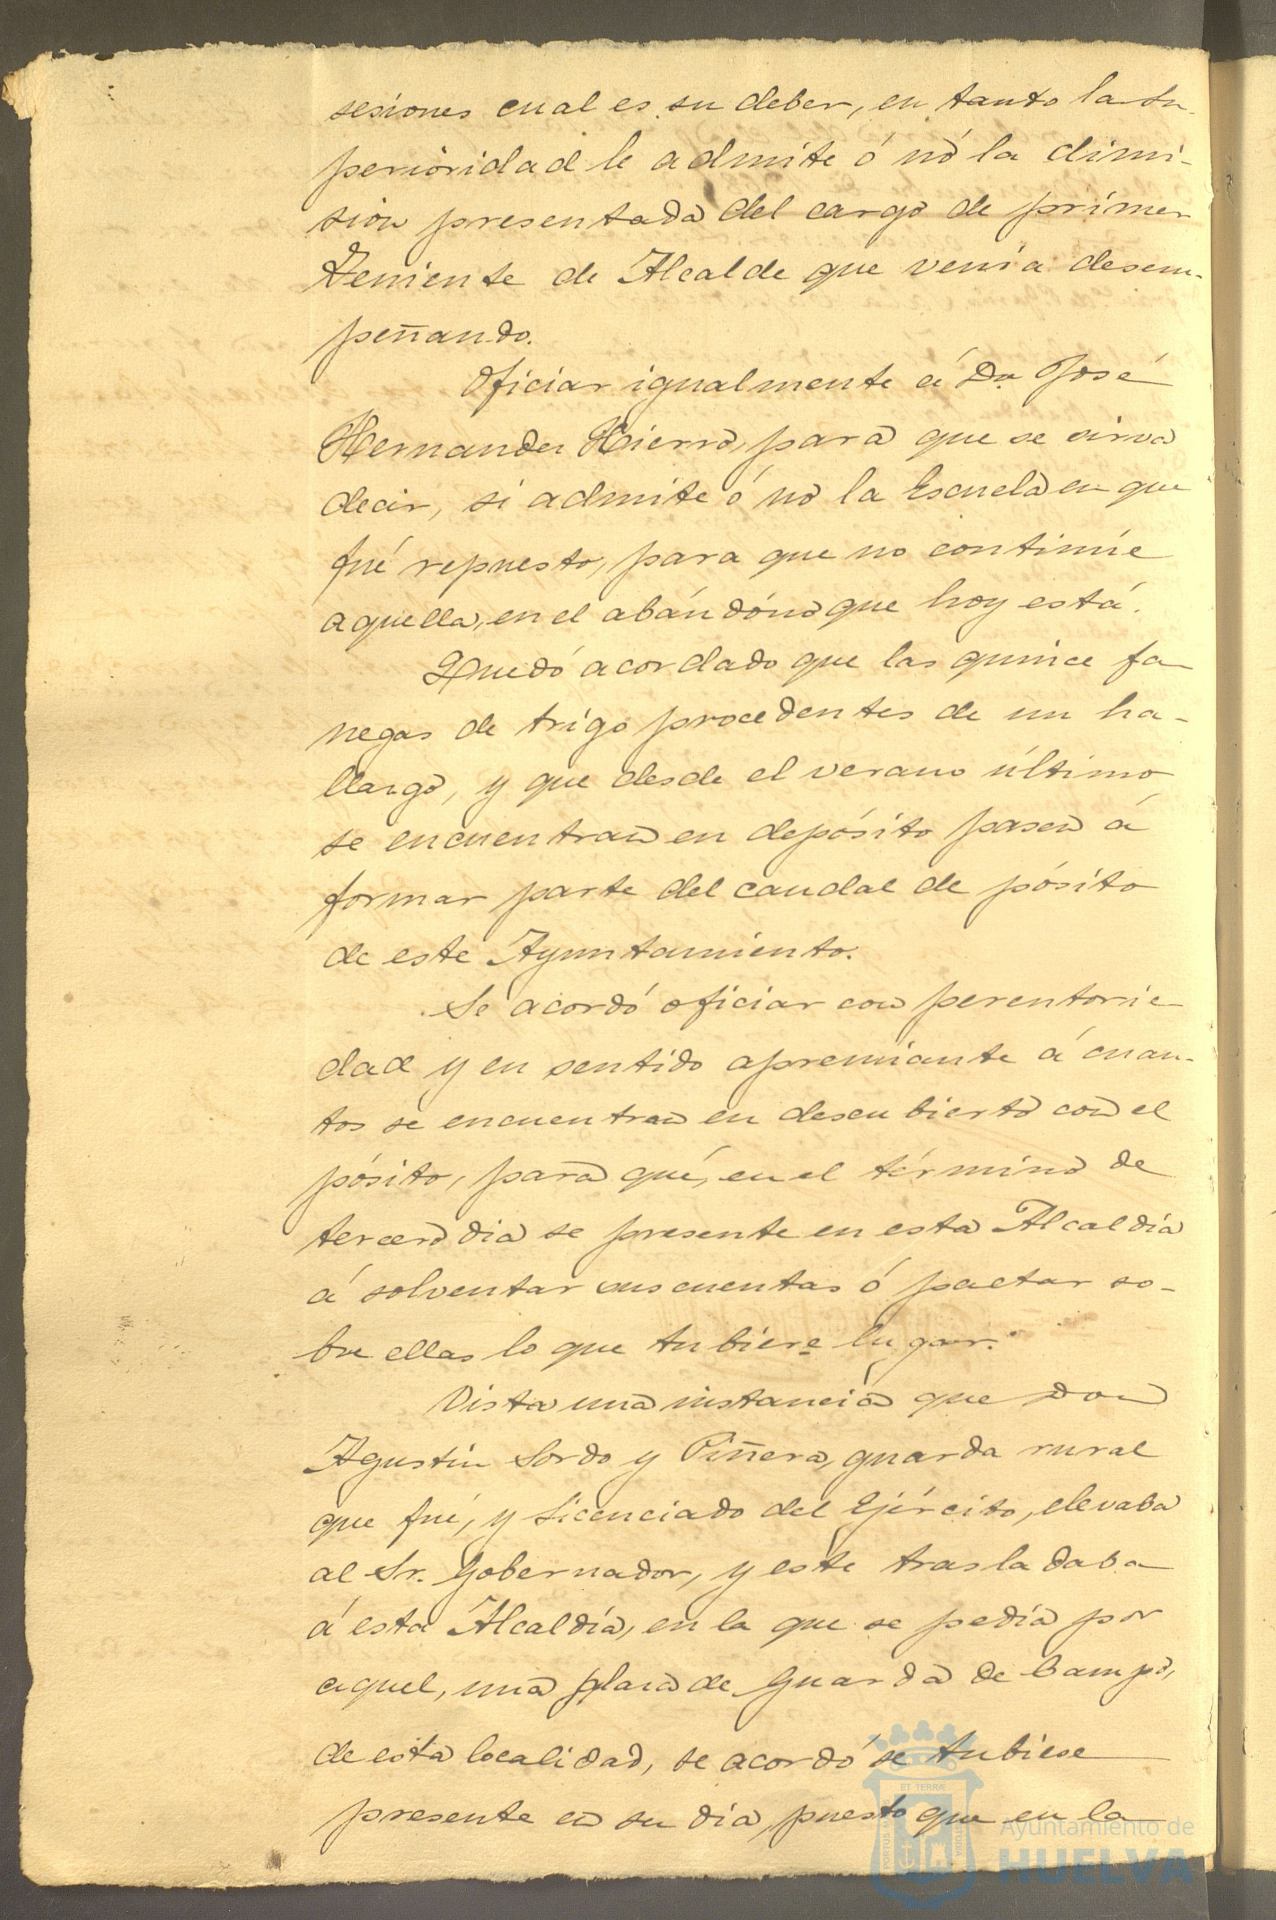 sesiones cual es su deber, en tanto la Su-
perioridad le admite ó nó la dimi-
sión presentada del cargo de primer
Teniente de Alcalde que venía desem-
peñando.
Oficiar igualmente á Dn José
Hernandez Hierro, para que se sirva
decir, si admite ó nó la Escuela en que
fué repuesto, para que no continúe
aquella, en el abándóno que hoy está.
Quedó acordado que las quince fa
negas de trigo procedentes de un ha-
llazgo, y que desde el verano último
se encuentran en depósito pasen á
formar parte del caudal de pósito
de este Ayuntamiento.
Se acordó oficiar con perentorie
dad y en sentido apremiante á cuan-
tos se encuentran en descubierto con el
pósito, para qué, en el término de
tercero dia se presente en esta Alcaldía
á solventar sus cuentas ó pactar so-
bre ellas lo que tubiere lugar.
Vista una instancia que don
Agustín Sordo y Piñero, guarda rural
que fué, y Licenciado del Ejército, elevaba
al Sr. Gobernador, y este trasladaba
á esta Alcaldía, en la que se pedía por
aquel, una plaza de Guarda de Campo,
de esta localidad, se acordó se tubiese
presente en su día, puesto que en la
ET TERRÆ
Ayuntamiento de
HUELVA